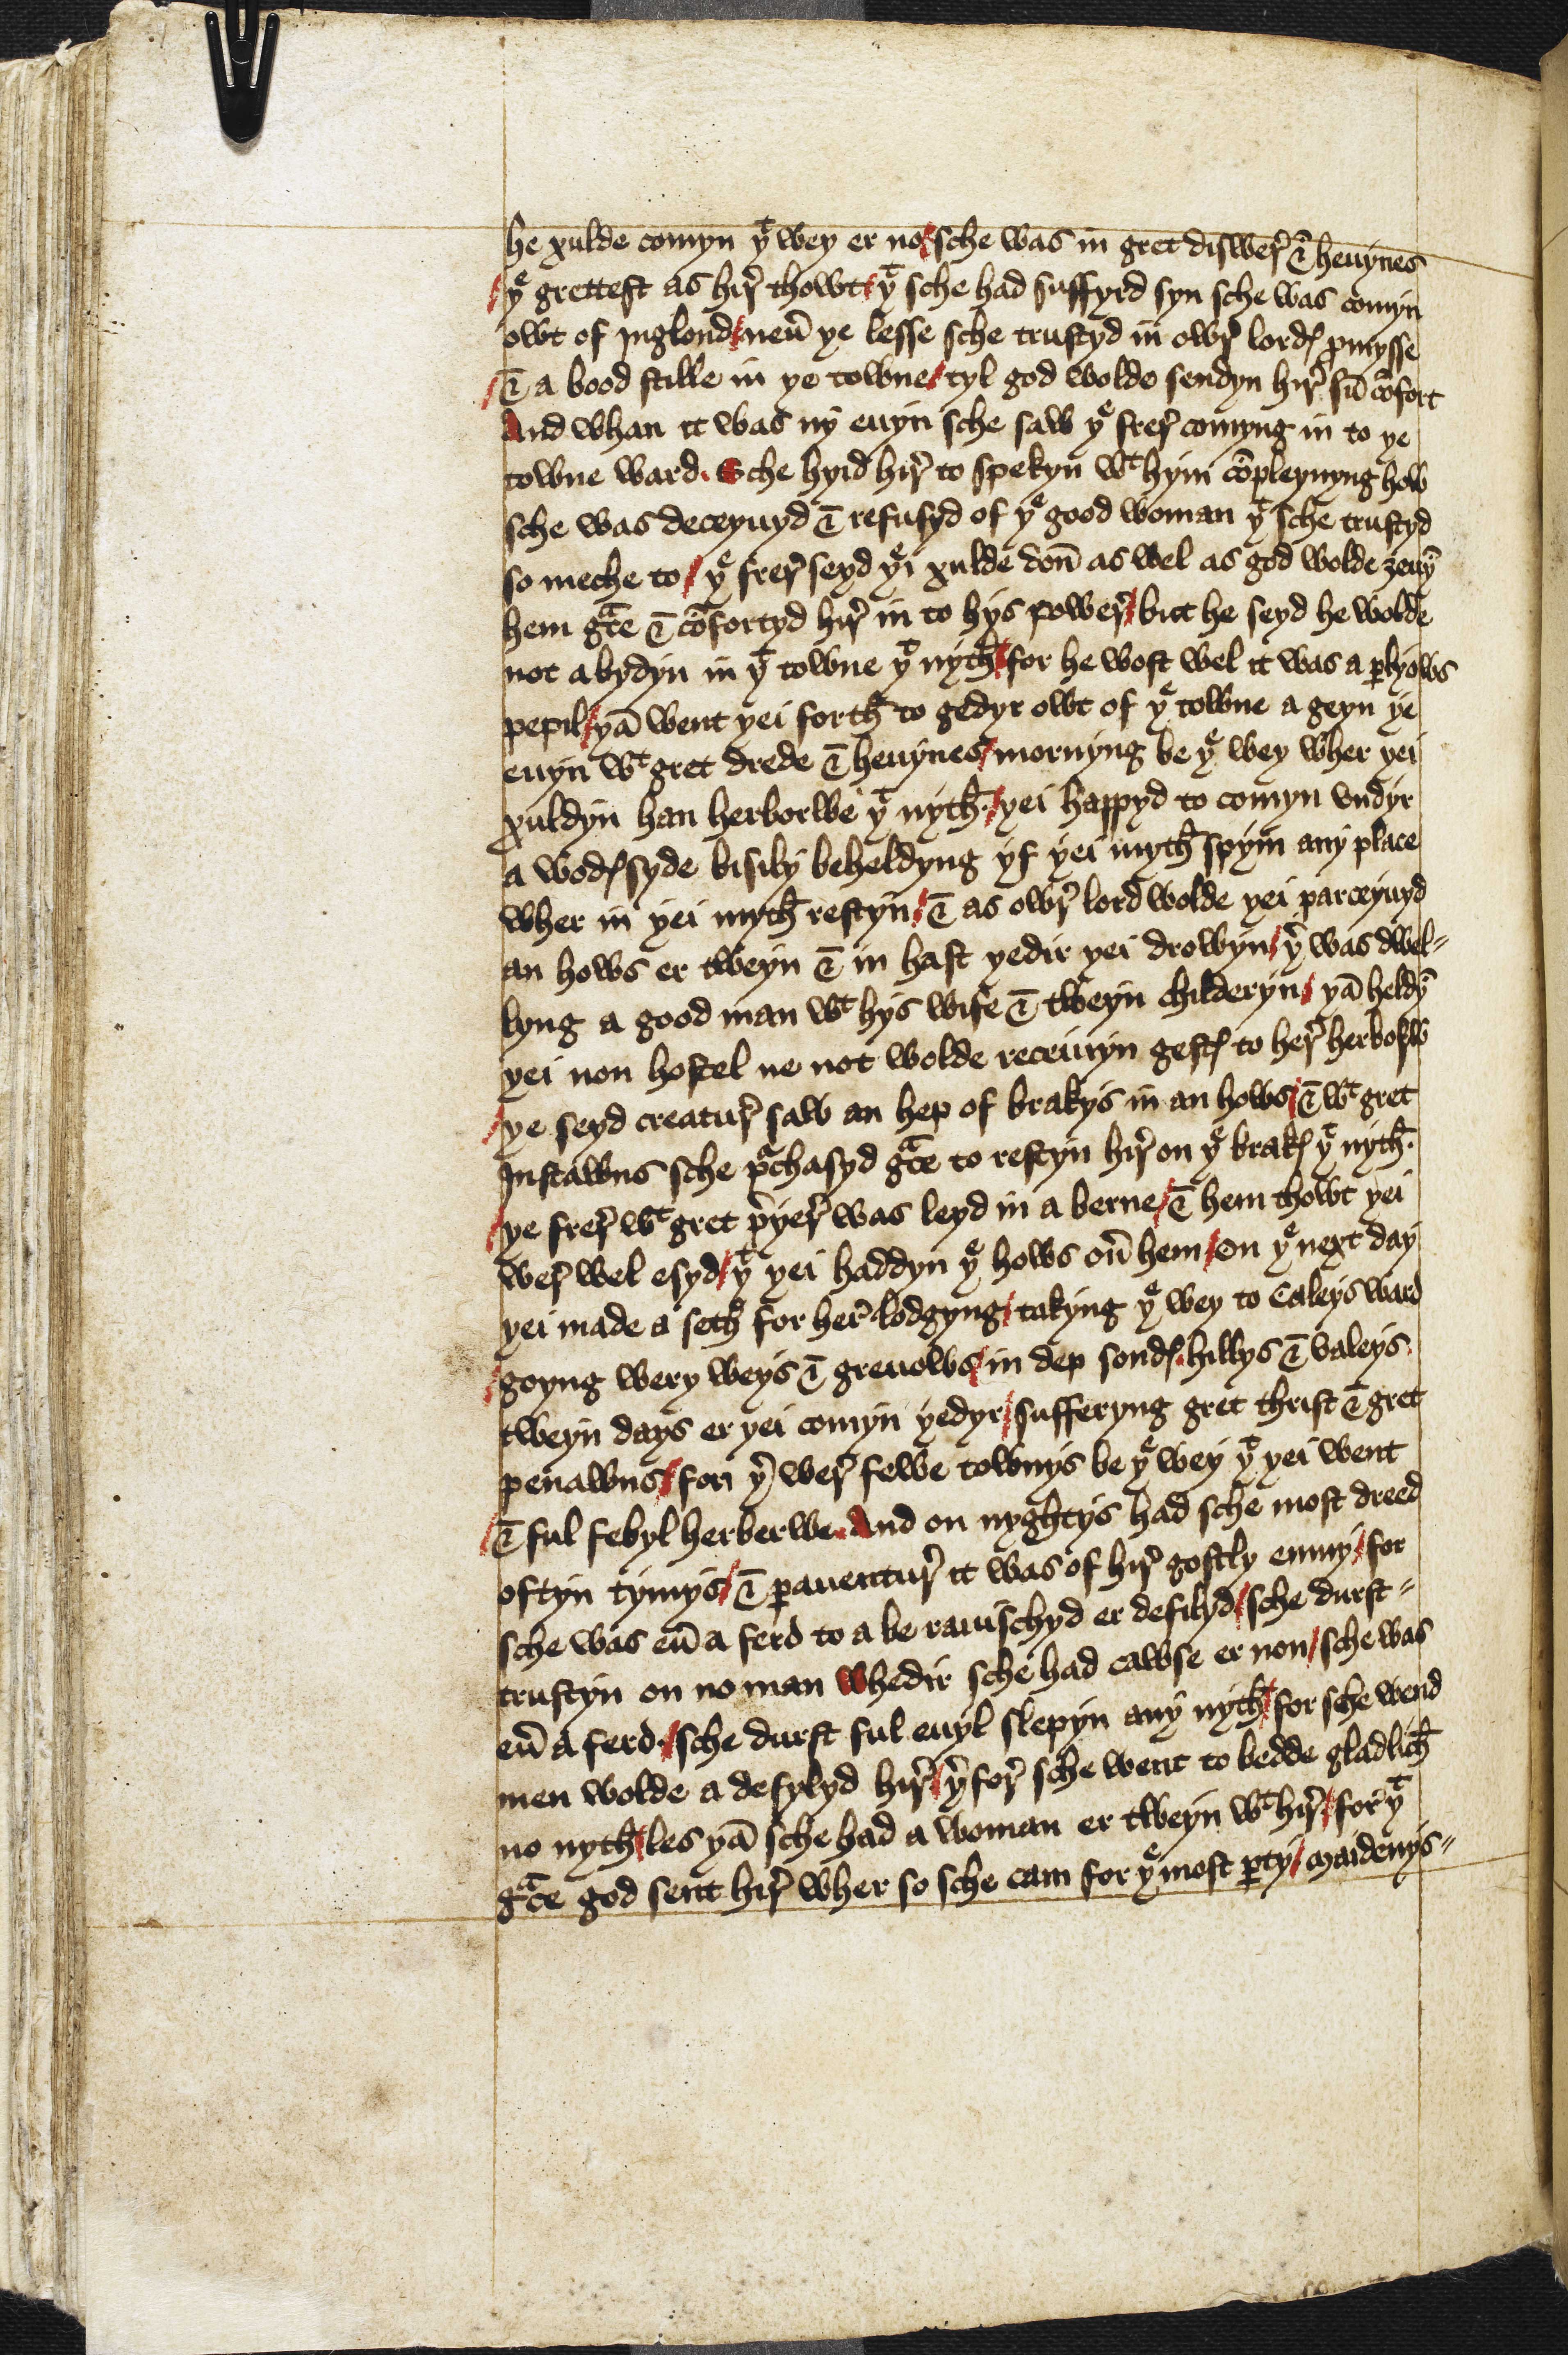 he xulde comyn yͭ wey er no / sche was in gret diswer̛ & heuynes
/ yͤ grettest as hir̛ thowt / yͭ sche had suffyrd syn sche was comyn
owt of Inglond / neu̅ ye lesse sche trustyd in owr̛ lordꝭ ꝓmysse
/ & a bood stille in ye towne / tyl god wolde sendyn hir̛ su̅ co̅fort
And whan it was ny euyn sche saw yͤ frer̛ comyng in to ye
towne ward. Sche hyid hir̛ to spekyn wͭ hym co̅pleynyng how
sche was deceyuyd & refusyd of yͤ good woman yͭ sche trustyd
so meche to / yͤ frer̛ seyd yͤi xulde don̅ as wel as god wolde ȝeuy̅
hem gͣce & co̅fortyd hir̛ in to hys power̛ / but he seyd he wolde
not abydyn in yͭ towne yͭ nyth̅ / for he wost wel it was a ꝑlyows
pepil / ya̅ went yei forth̅ to gedyr owt of yͤ towne a geyn ye
euyn wͭ gret drede & heuynes / mornyng be yͤ wey wher yei
xuldyn han herborwe yͭ nyth̅. / yei happyd to comyn vndyr
a wodꝭ syde bisily beheldyng yf yei myth̅ spyin any place
wher in yei myth̅ restyn / & as owr̛ lord wolde yei parceyuyd
an hows er tweyn & in hast yedir yei drowyn / yͬ was dwel=
lyng a good man wͭ hys wife & tweyn childeryn / ya̅ heldy̅
yei non hostel ne not wolde receiuyn gestꝭ to her̛ herborw
/ ye seyd creatur̛ saw an hep of brakys in an hows / & wͭ gret
Instawns sche pͬchasyd gͣce to restyn hir̛ on yͤ brakꝭ yͭ nyth̅.
/ ye frer̛ wͭ gret pͬyer̛ was leyd in a berne / & hem thowt yei
wer̛ wel esyd / yͭ yei haddyn yͤ hows ou̅ hem / on yͤ next day
yei made a seth̅ for her̛ lodgyng / takyng yͤ wey to Caleys ward
/ goyng wery weys & greuows / in dep sondꝭ. hillys & valeys.
tweyn days er yei comyn yedyr / sufferyng gret thrist & gret
penawns / for yͬ wer̛ fewe townys be yͤ wey yͭ yei went
/ & ful febyl herberwe. And on nyghtys had sche most dreed
oftyn tymys / & ꝑauentur̛ it was of hir̛ gostly enmy / for
sche was eu̅ a ferd to a be rauischyd er defilyd / sche durst=
trustyn on no man whedir sche had cawse er non / sche was
eu̅ a ferd. / sche durst ful euyl slepyn any nyth̅ / for sche wend
men wolde a defylyd hir̛ / yͬ for̛ sche went to bedde gladlich̅
no nyth̅ / les ya̅ sche had a woman er tweyn wͭ hir̛ / for yͭ
gͣce god sent hir̛ wher so sche cam for yͤ most ꝑty / maidenys=